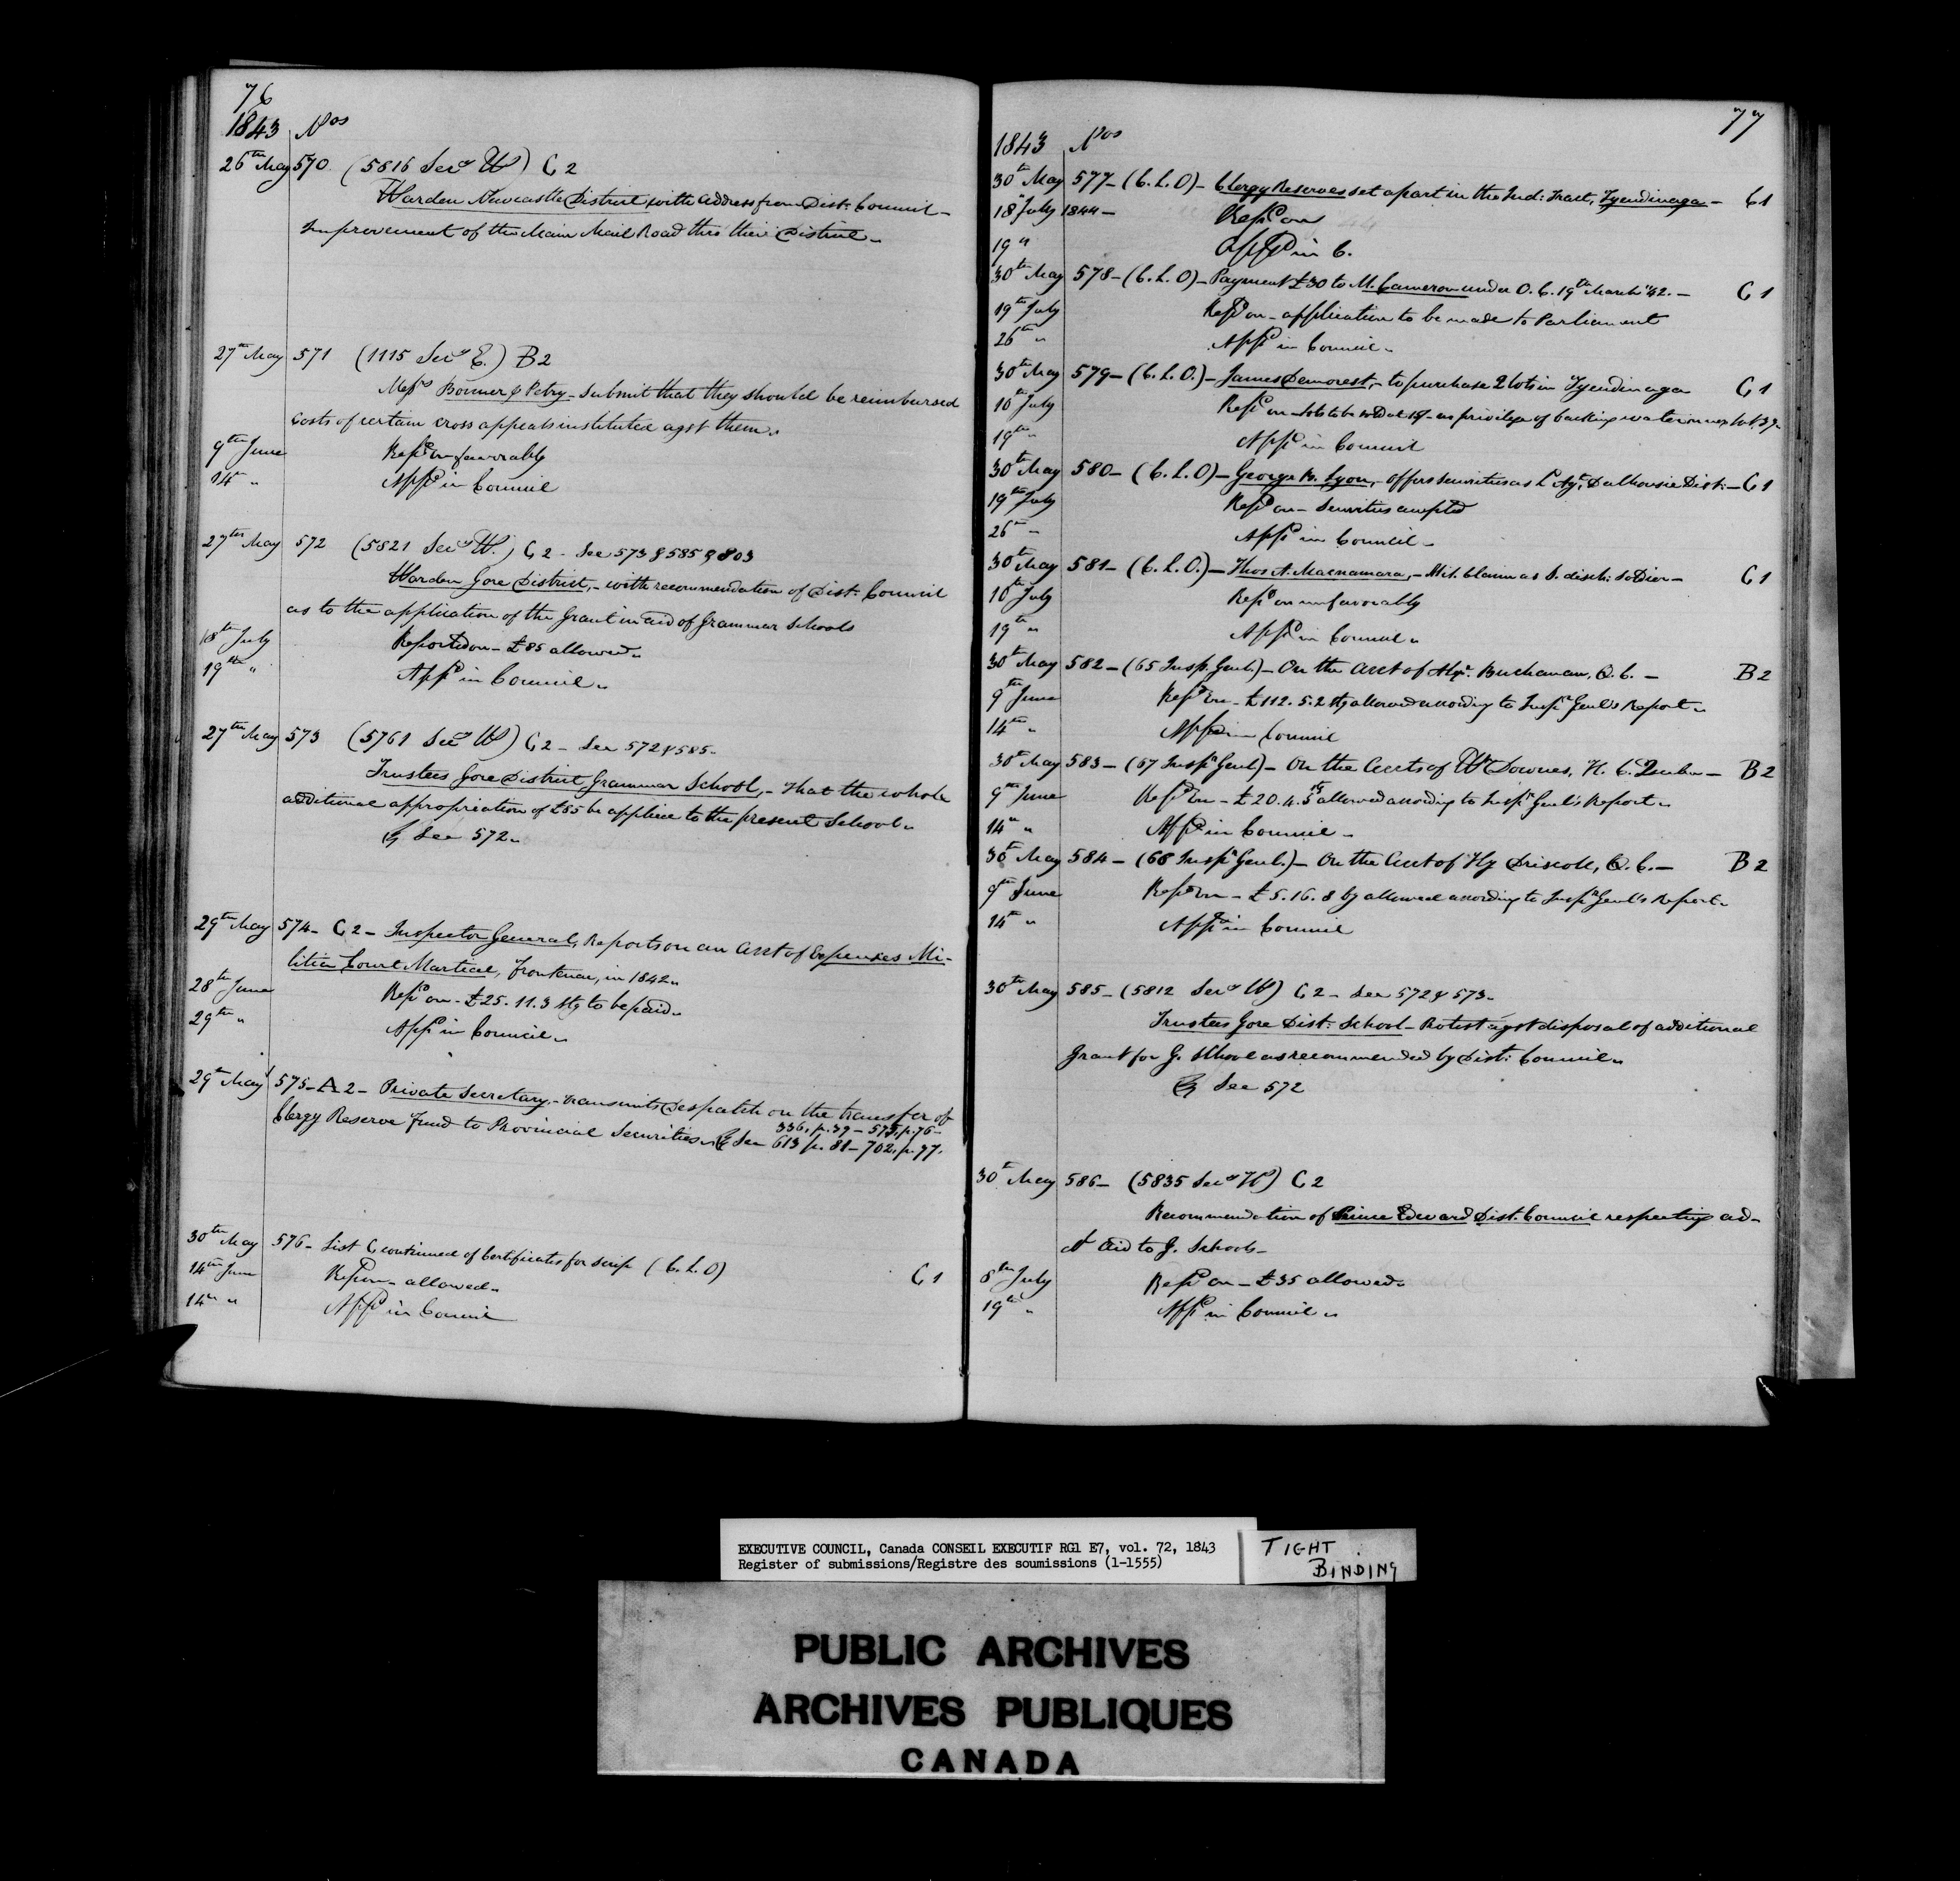 76
1843 Nos
26th May 570 (5816 Secy W) C 2
Warden Newcastle District with address from Dist: Council -
Improvement of the Main Mail Road thro their District.
27th May 571 (1115 Secy E.) B 2
Messrs Bonner & Petry - Submit that they should be reimbursed
costs of certain cross appeals instituted agst them.
9th June Repd on favorably
14th " Appd in Council
27th May 572 (5821 Secy W.) C 2 - See 573 & 585 & 803
Warden Gore District, - with recommendation of Dist: Council
as to the application of the Grant in aid of Grammar Schools
18th July Reported on - £85 allowed.
19th " Appd in Council.
27th May 573 (5761 Secy W) C 2 - See 572 & 585.
Trustees Gore District Grammar School, - That the whole
additional appropriation of £85 be applied to the present School.
See 572.
29th May 574 - C 2 - Inspector General, Reports on an Acct of Expenses Mi-
litia Court Martial, Frontenac, in 1842.
28th June Repd on - £25. 11. 3 Stg to be paid.
29th " Appd in Council.
29th May 575 - A 2 - Private Secretary, - transmits Despatch on the transfer of
Clergy Reserve Fund to Provincial Securities.
336, p. 39 - 575, p. 76 -
See 613 p. 81 - 702, p. 97.
30th May 576 - List C continued of Certificates for Scrip (C. L. O)
14th June Rep on - allowed. C 1
14th " Appd in Council
77
1843 Nos
30th May 577 - (C. L. O) - Clergy Reserves set apart in the Ind: Tract, Tyendinaga - C 1
18 July 1844 - Repd on
19 " Appd in C.
30th May 578 - (C. L. O) - Payment £30 to M. Cameron under O. C. 19th March '42. - C 1
19th July Repd on - application to be made to Parliament
26th " Appd in Council.
30th May 579 - (C. L. O.) - James Demorest, - to purchase 2 lots in Tyendinaga C 1
10th July Repd on - lots to be sold at - no privilege of backing water on lot 39.
19th " Appd in Council
30th May 580 - (C. L. O) - George B. Lyon, - offers securities as L. Agt. Dalhousie Dist: - C 1
19th July Repd on - Securities accepted
26th - Appd in Council -
30th May 581 - (C. L. O.) - Thos A. Macnamara, - Mil. Claim as a disch: Soldier - C 1
10th July Repd on unfavorably
19th " Appd in Council.
30th May 582 - (65 Insp. Genl.) - On the Acct of Alexr. Buchanan, Q. C. - B 2
9th June Repd on - £112. 5. 2 Stg allowed according to Inspr Genl's Report.
14th " Appd in Council
30th May 583 - (67 Inspr Genl) - On the Accts of Wm Downes, H. C. Quebec - B 2
9th June Repd on - £20. 4. 5 allowed according to Inspr Genl's Report.
14th " Appd in Council -
30th May 584 - (68 Inspr Genl.) - On the Acct of Hy Driscoll, Q. C. - B 2
9th June Repd on - £5. 16. 8 Cy allowed according to Inspr Genl's Report.
14th " Appd in Council
30th May 585 - (5812 Secy W) C 2 - See 572 & 573 -
Trustees Gore Dist: School - Protest agst disposal of additional
Grant for G. School as recommended by Dist: Council.
See 572
30th May 586 - (5835 Secy W) C 2
Recommendation of Prince Edward Dist. Council respecting ad-
dl Aid to G. Schools -
8th July Repd on - £35 allowed.
19th " Appd in Council.
EXECUTIVE COUNCIL, Canada CONSEIL EXECUTIF RG1 E7, vol. 72, 1843
Register of submissions/Registre des soumissions (1-1555)
TIGHT
BINDING
PUBLIC ARCHIVES
ARCHIVES PUBLIQUES
CANADA